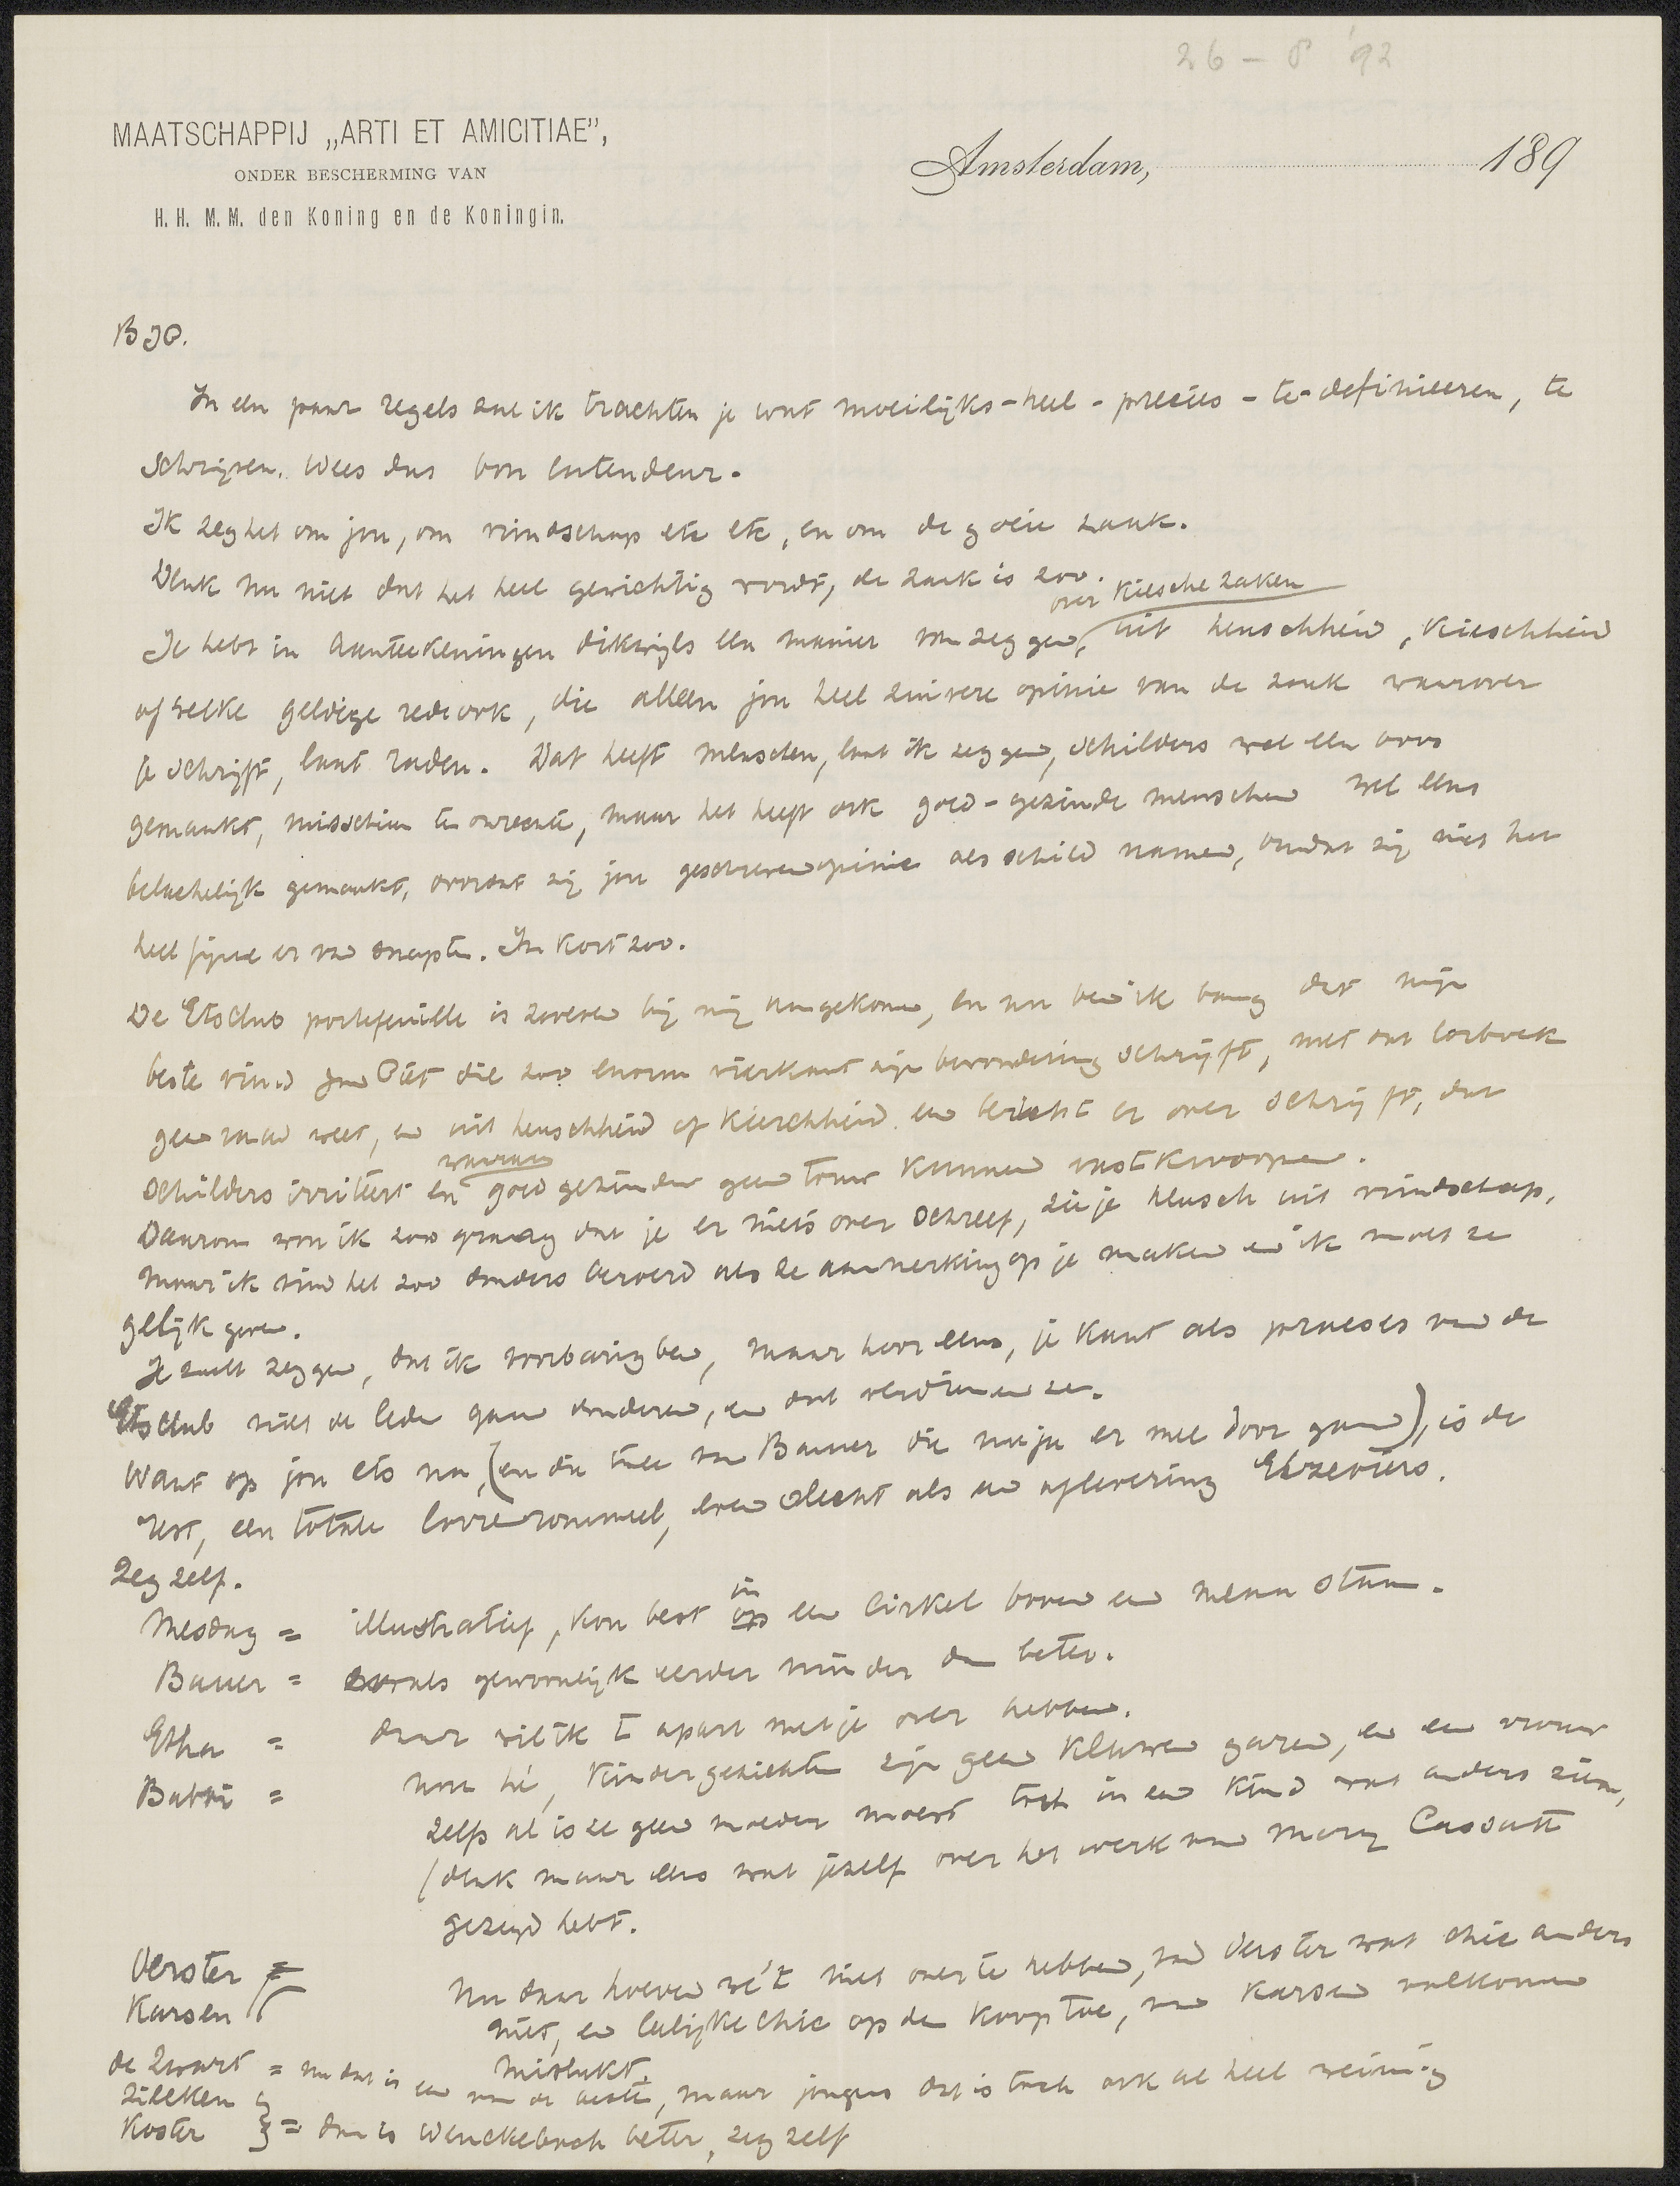 26 - 8 '92
MAATSCHAPPIJ „ARTI ET AMICITIAE”,
ONDER BESCHERMING VAN
H. H. M. M. den Koning en de Koningin.
Amsterdam, 189
B JO.
In een paar regels zal ik trachten je wat moeilijks-heel-precies-te-definieeren, te
schrijven. Wees dus bon entendeur.
Ik zeg het om jou, om vrindschap etc etc, en om de goeie zaak.
Denk nu niet dat het heel gewichtig wordt, de zaak is zoo.
over kiesche zaken
Je hebt in Aanteekeningen dikwijls een manier van zeggen, uit heuschheid, kieschheid
of welke geldige rede ook, die alleen jou heel zuivere opinie van de zaak waarover
je schrijft, laat raden. Dat heeft menschen, laat ik zeggen, schilders wel een boos
gemaakt, misschien ten onrechte, maar het heeft ook goed-gezinde menschen wel eens
belachelijk gemaakt, doordat zij jou geschreven opinie als schild namen, omdat zij niet het
heel fijne er van snapten. In kort zoo.
De Etsclub portefeuille is zooeven bij mij aangekomen, en nu ben ik bang dat mijn
beste vrind Jan Piet die zoo enorm vierkant zijn bewondering schrijft, met dat lorboek
geen raad weet, en uit heuschheid of kieschheid een bericht er over schrijft, dat
schilders irriteert en waaraan goed gezinden geen touw kunnen vastknoopen.
Daarom wou ik zoo graag dat je er niets over schreef, zie je heusch uit vrindschap,
maar ik vind het zoo donders beroerd als ze aanmerking op je maken en ik moet ze
gelijk geven.
Je zult zeggen, dat ik voorbarig ben, maar hoor eens, je kunt als praeses van de
Etsclub niet de leden gaan donderen, en dat verdienen ze.
Want op jou ets na, (en die twee van Bauer die netjes er mee door gaan), is de
rest, een totale lorrenrommel, even slecht als een aflevering Elzeviers.
Zeg zelf.
Mesdag = illustratief, kon best in op een cirkel boven een menu staan.
Bauer = zooals gewoonlijk eerder minder dan beter.
Etha = daar wil ik 't apart met je over hebben.
Babbi = nou hé, kindergezichten zijn geen kluwen garen, en een vrouw
zelfs al is ze geen moeder moest toch in een kind wat anders zien,
(denk maar eens wat jezelf over het werk van Mary Cassatt
gezegd hebt.
Verster =
Karsen
Nu daar hoeven wé 't niet over te hebben, van Verster wat chic anders
niet, en lelijke chic op den koop toe, van Karsen volkomen
mislukt.
de Zwart = nu dat is een van de beste, maar jongens dat is toch ook al heel weinig
Zilcken
Koster } = dan is Wenckebach beter, zeg zelf